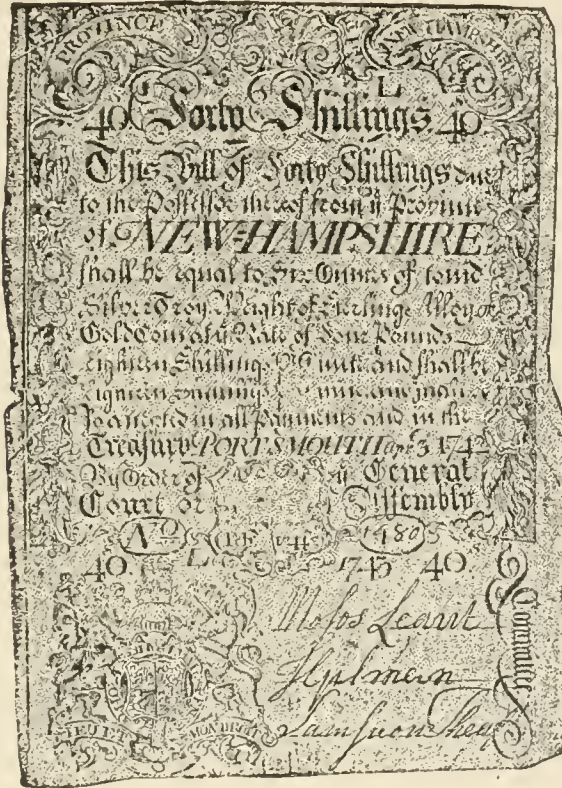 PROVINCE NEW HAMPSHIRE
L
40 Forty Shillings 40
This Bill of Forty Shillings due
to the Possessor thereof from yͤ Province
of NEW=HAMPSHIRE
shall be equal to Six Ounces of coind
Silver Troy Weight of Sterling Alloy or
Gold Coin at yͤ Rate of Four Pounds
eighteen Shillings Ounce and shall be
accepted in all Payments and in the
Treasury PORTSMOUTH apr 3 1742
By Order of yͤ General
Court or Assembly
No 1480
40 L 1743 40
Committee
DIEU ET MON DROIT